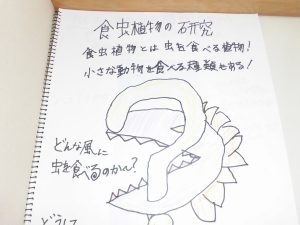 食虫植物の研究
食虫植物とは虫を食べる植物!
小さな動物を食べる種類もある!
どんな風に
虫を食べるのかな?
どうして